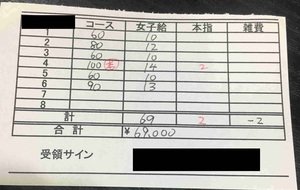 コース 女子給 本指 雑費
1 60 10
2 80 12
3 60 10
4 100 14 2
5 60 10
6 90 13
7
8
計 69 2 -2
合計 ¥69.000
受領サイン